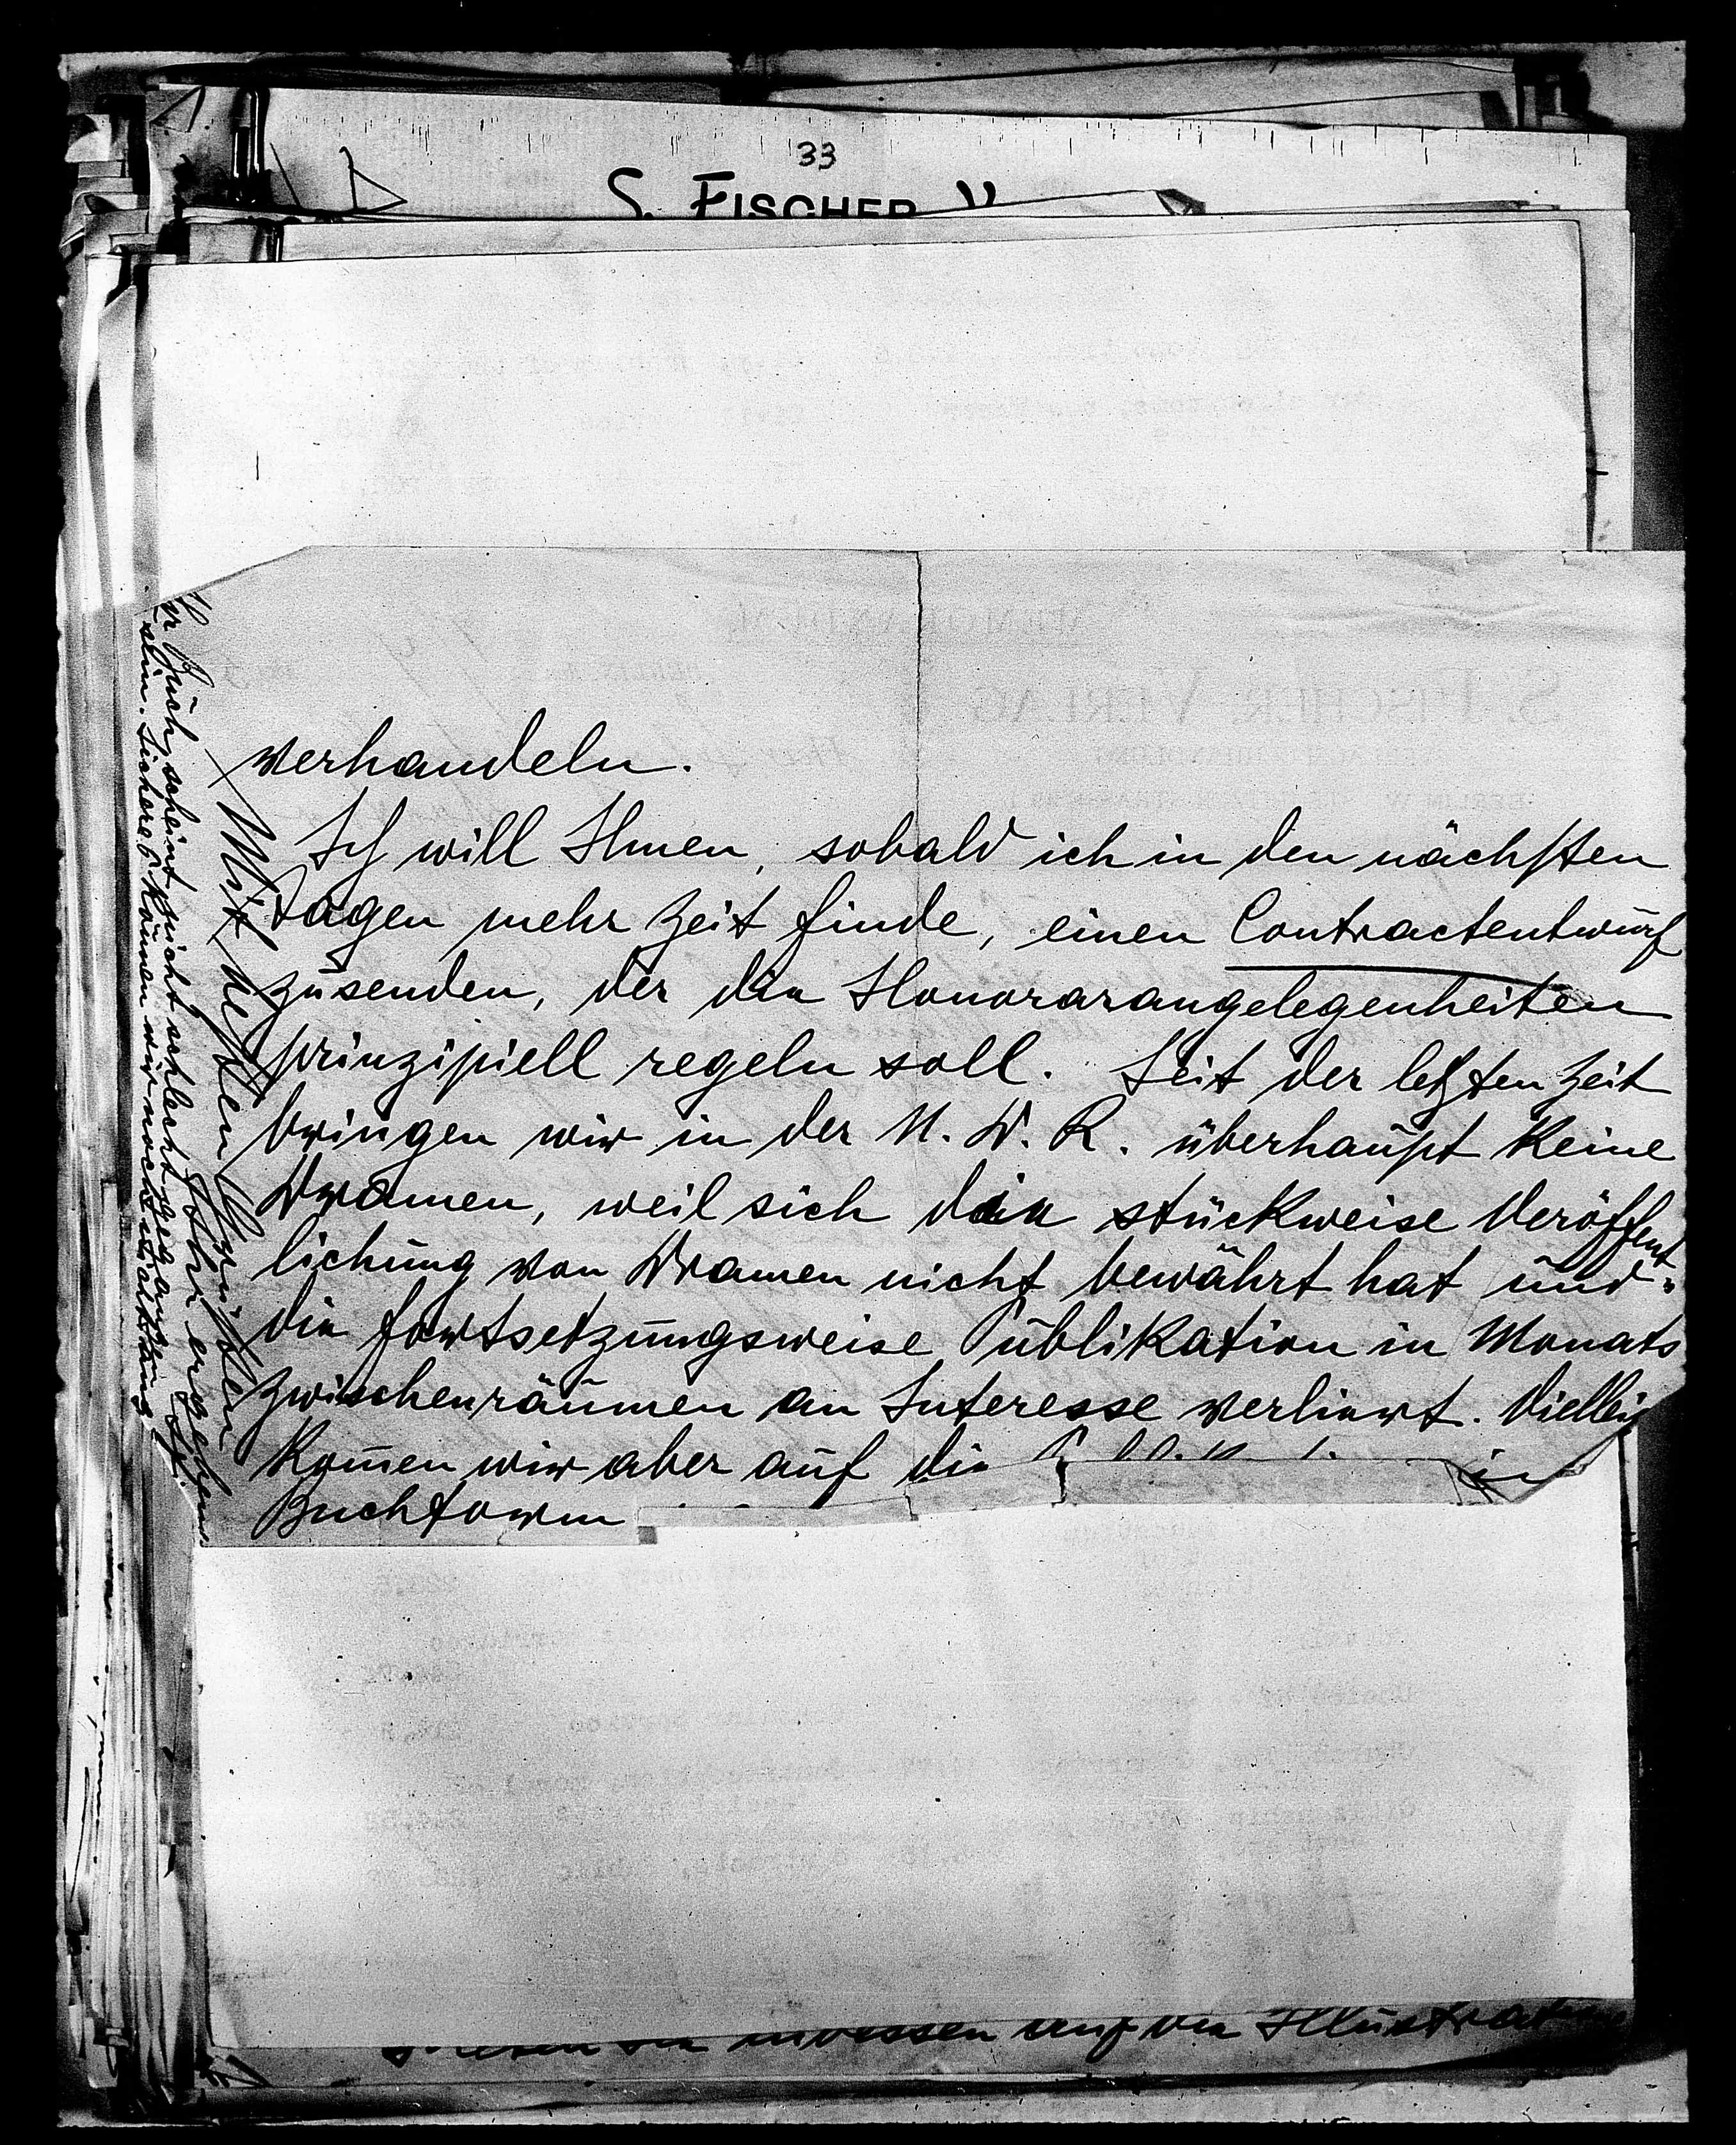 33
S. FISCHER V
verhandeln.
Ich will Ihnen, sobald ich in den nächsten
Tagen mehr Zeit finde, einen Contractentwurf
zusenden, der die Honorarangelegenheiten
prinzipiell regeln soll. Seit der letzten Zeit
bringen wir in der N. D. R. überhaupt keine
Dramen, weil sich die stückweise Veröffent-
lichung von Dramen nicht bewährt hat und
die fortsetzungsweise Publikation in Monats
zwischenräumen an Interesse verliert. Vielleich
kom̄en wir aber auf die in
Buchform
Mit besten Grüßen
Ihr ergebener
Ihr Buch scheint nicht schlecht gegangen zu
sein. Sicheres können wir noch nicht
indessen auf die Illustration